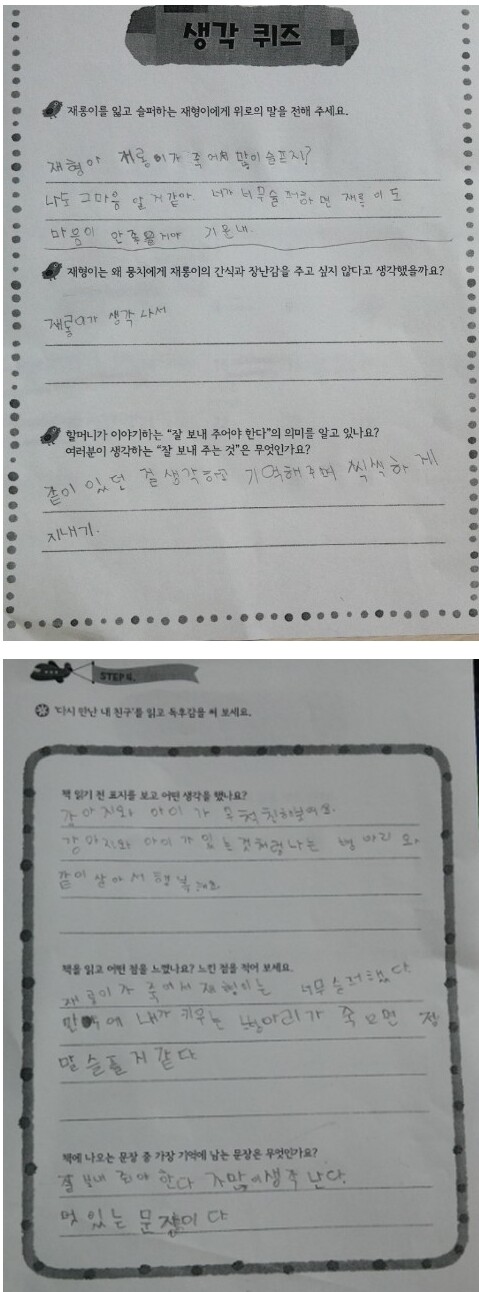 생각 퀴즈
재롱이를 잃고 슬퍼하는 재형이에게 위로의 말을 전해 주세요.
재형아 재롱이가 죽어서 많이 슬프지?
나도 그마음 알거같아 너가 너무슬퍼하면 재롱이도
마음이 안좋을거야 기운내.
재형이는 왜 뭉치에게 재롱이의 간식과 장난감을 주고 싶지 않다고 생각했을까요?
재롱이가 생각나서
할머니가 이야기하는 “잘 보내 주어야 한다”의 의미를 알고 있나요?
여러분이 생각하는 “잘 보내 주는 것”은 무엇인가요?
같이 있던 걸 생각하고 기억해주며 씩씩하게
지내기.
STEP 6.
'다시 만난 내 친구'를 읽고 독후감을 써 보세요.
책 읽기 전 표지를 보고 어떤 생각을 했나요?
강아지와 아이가 무척친해보여요.
강아지와 아이가 있는것처럼 나는 병아리와
같이 살아서 행복해요
책을 읽고 어떤 점을 느꼈나요? 느낀 점을 적어 보세요.
재롱이가 죽어서 재형이는 너무슬퍼했다
만약에 내가 키우는 병아리가 죽으면 정
말 슬플거같다
책에 나오는 문장 중 가장 기억에 남는 문장은 무엇인가요?
잘보내 줘야 한다 가많이생각난다.
멋있는 문장이다